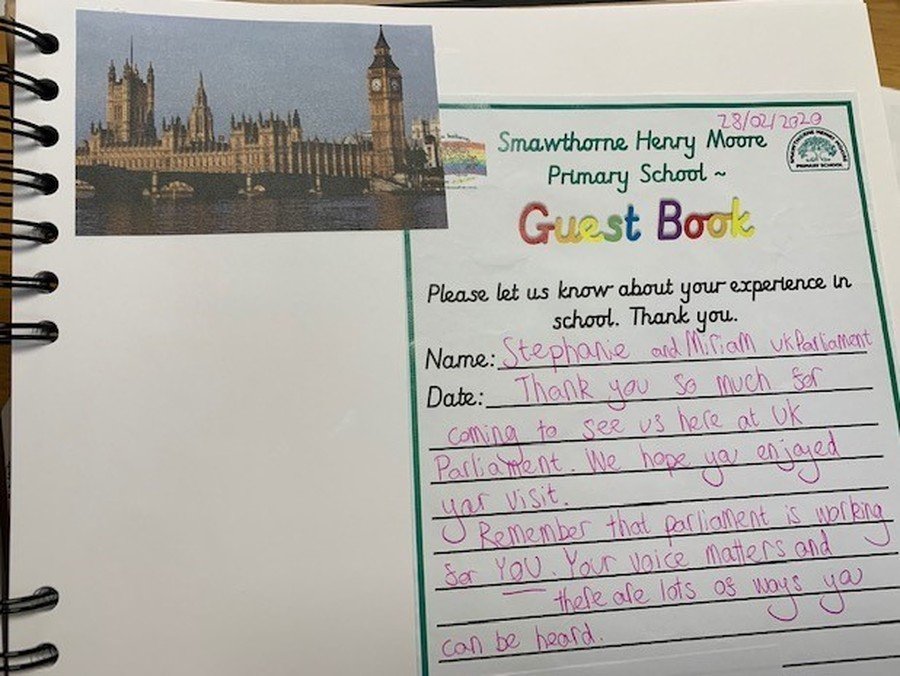 28/02/2020
Smawthorne Henry Moore
Primary School ~
SMAWTHORNE HENRY MOORE
PRIMARY SCHOOL
Guest Book
Please let us know about your experience in
school. Thank you.
Name: Stephanie and Miriam UK Parliament
Date: Thank you so much for
coming to see us here at UK
Parliament. We hope you enjoyed
your visit.
Remember that parliament is working
for YOU. Your voice matters and
there are lots of ways you
can be heard.